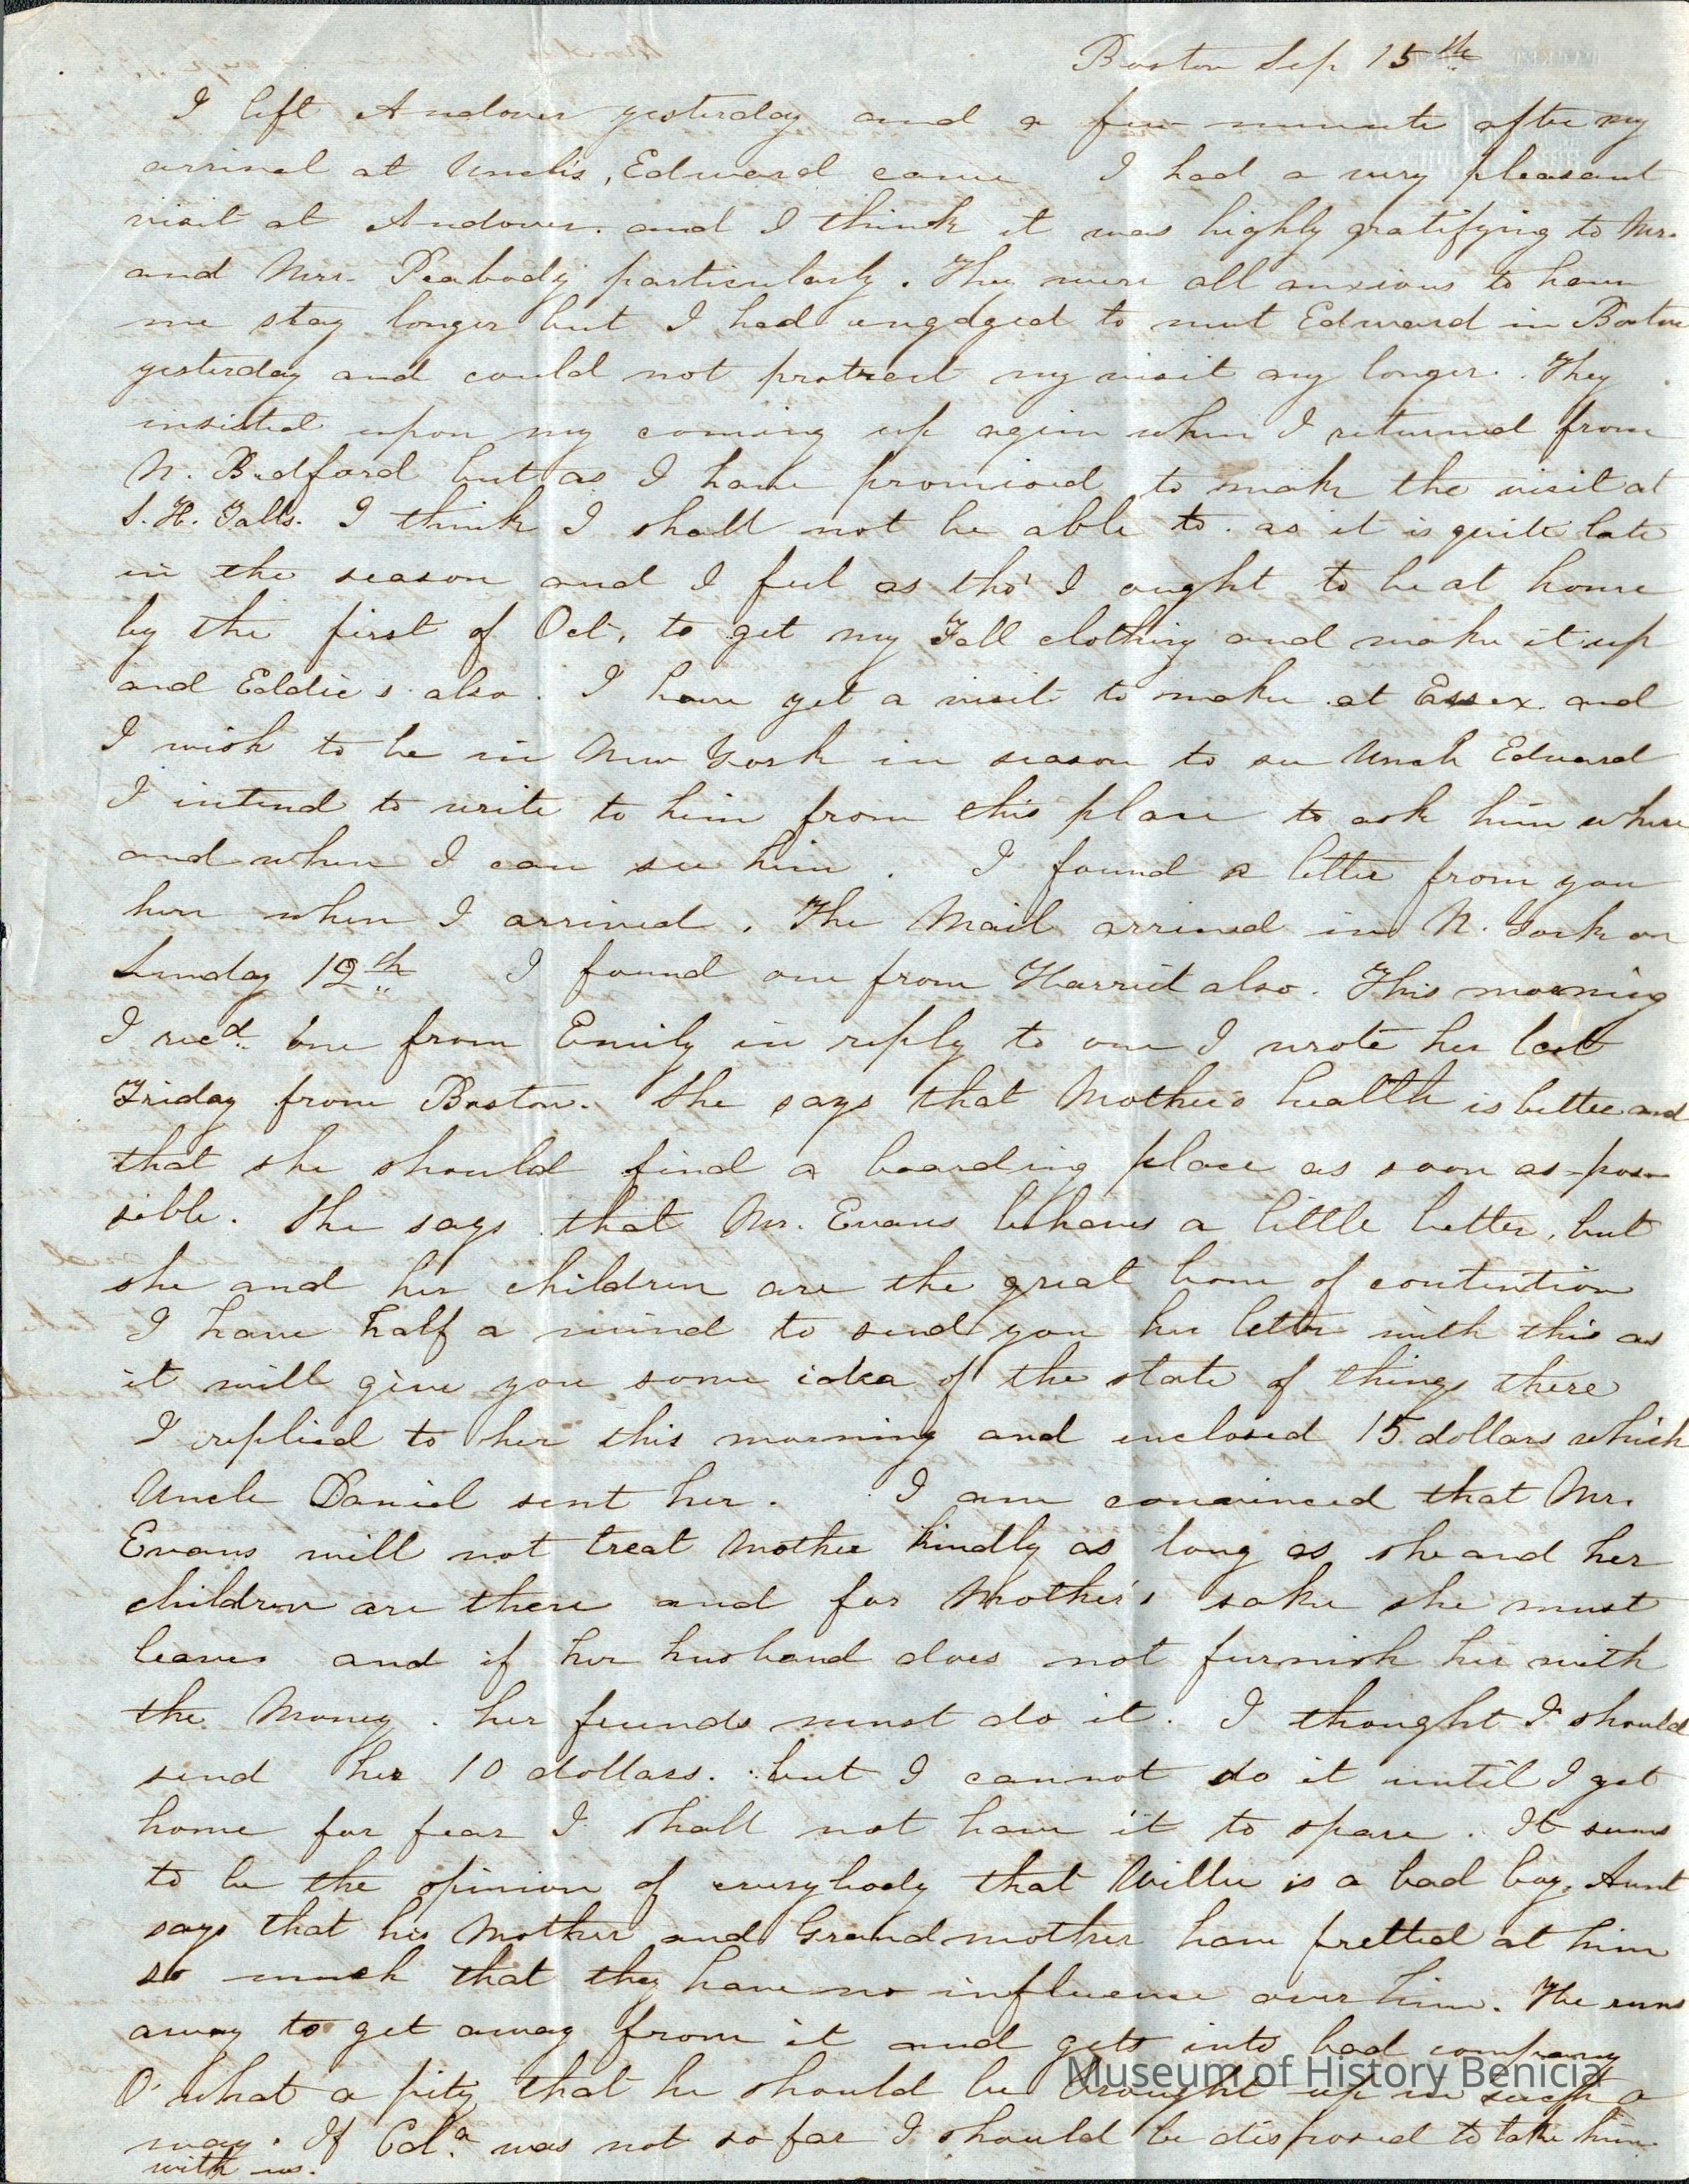 Boston Sep 15th
I left Andover yesterday and a few minute after my
arrival at Uncle's, Edward came I had a very pleasant
visit at Andover. and I think it was highly gratifying to Mr.
and Mrs. Peabody particularly. They were all anxious to have
me stay longer but I had engaged to meet Edward in Boston
yesterday and could not protract my visit any longer. They
insisted upon my coming up again when I returned from
N. Bedford but as I have promised to make the visit at
S. H. Falls. I think I shall not be able to. as it is quite late
in the season and I feel as tho' I ought to be at home
by the first of Oct. to get my Fall clothing and make it up
and Eddie s also. I have yet a visit to make at Essex. and
I wish to be in New York in season to see Uncle Edward
I intend to write to him from this place to ask him where
and when I can see him. I found a letter from you
here when I arrived. The Mail arrived in N. York on
Sunday 12th I found one from Harriet also. This morning
I recd. one from Emily in reply to one I wrote her last
Friday from Boston. She says that Mother's health is better and
that she should find a boarding place as soon as pos-
sible. She says that Mr. Evans behaves a little better, but
she and her children are the great bone of contention
I have half a mind to send you her letter with this as
it will give you some idea of the state of things there
I replied to her this morning and enclosed 15 dollars which
Uncle Daniel sent her. I am convinced that Mr.
Evans will not treat Mother kindly as long as she and her
children are there and for Mother's sake she must
leave and if her husband does not furnish her with
the Money. her friends must do it. I thought I should
send her 10 dollars. but I cannot do it until I get
home for fear I shall not have it to spare. It seems
to be the opinion of everybody that Willie is a bad boy. Aunt
says that his Mother and Grandmother have fretted at him
so much that they have no influence over him. He runs
away to get away from it and gets into bad company
O' what a pity that he should be brought up in such a
way. If Cala. was not so far I should be disposed to take him
with us.
Museum of History Benicia